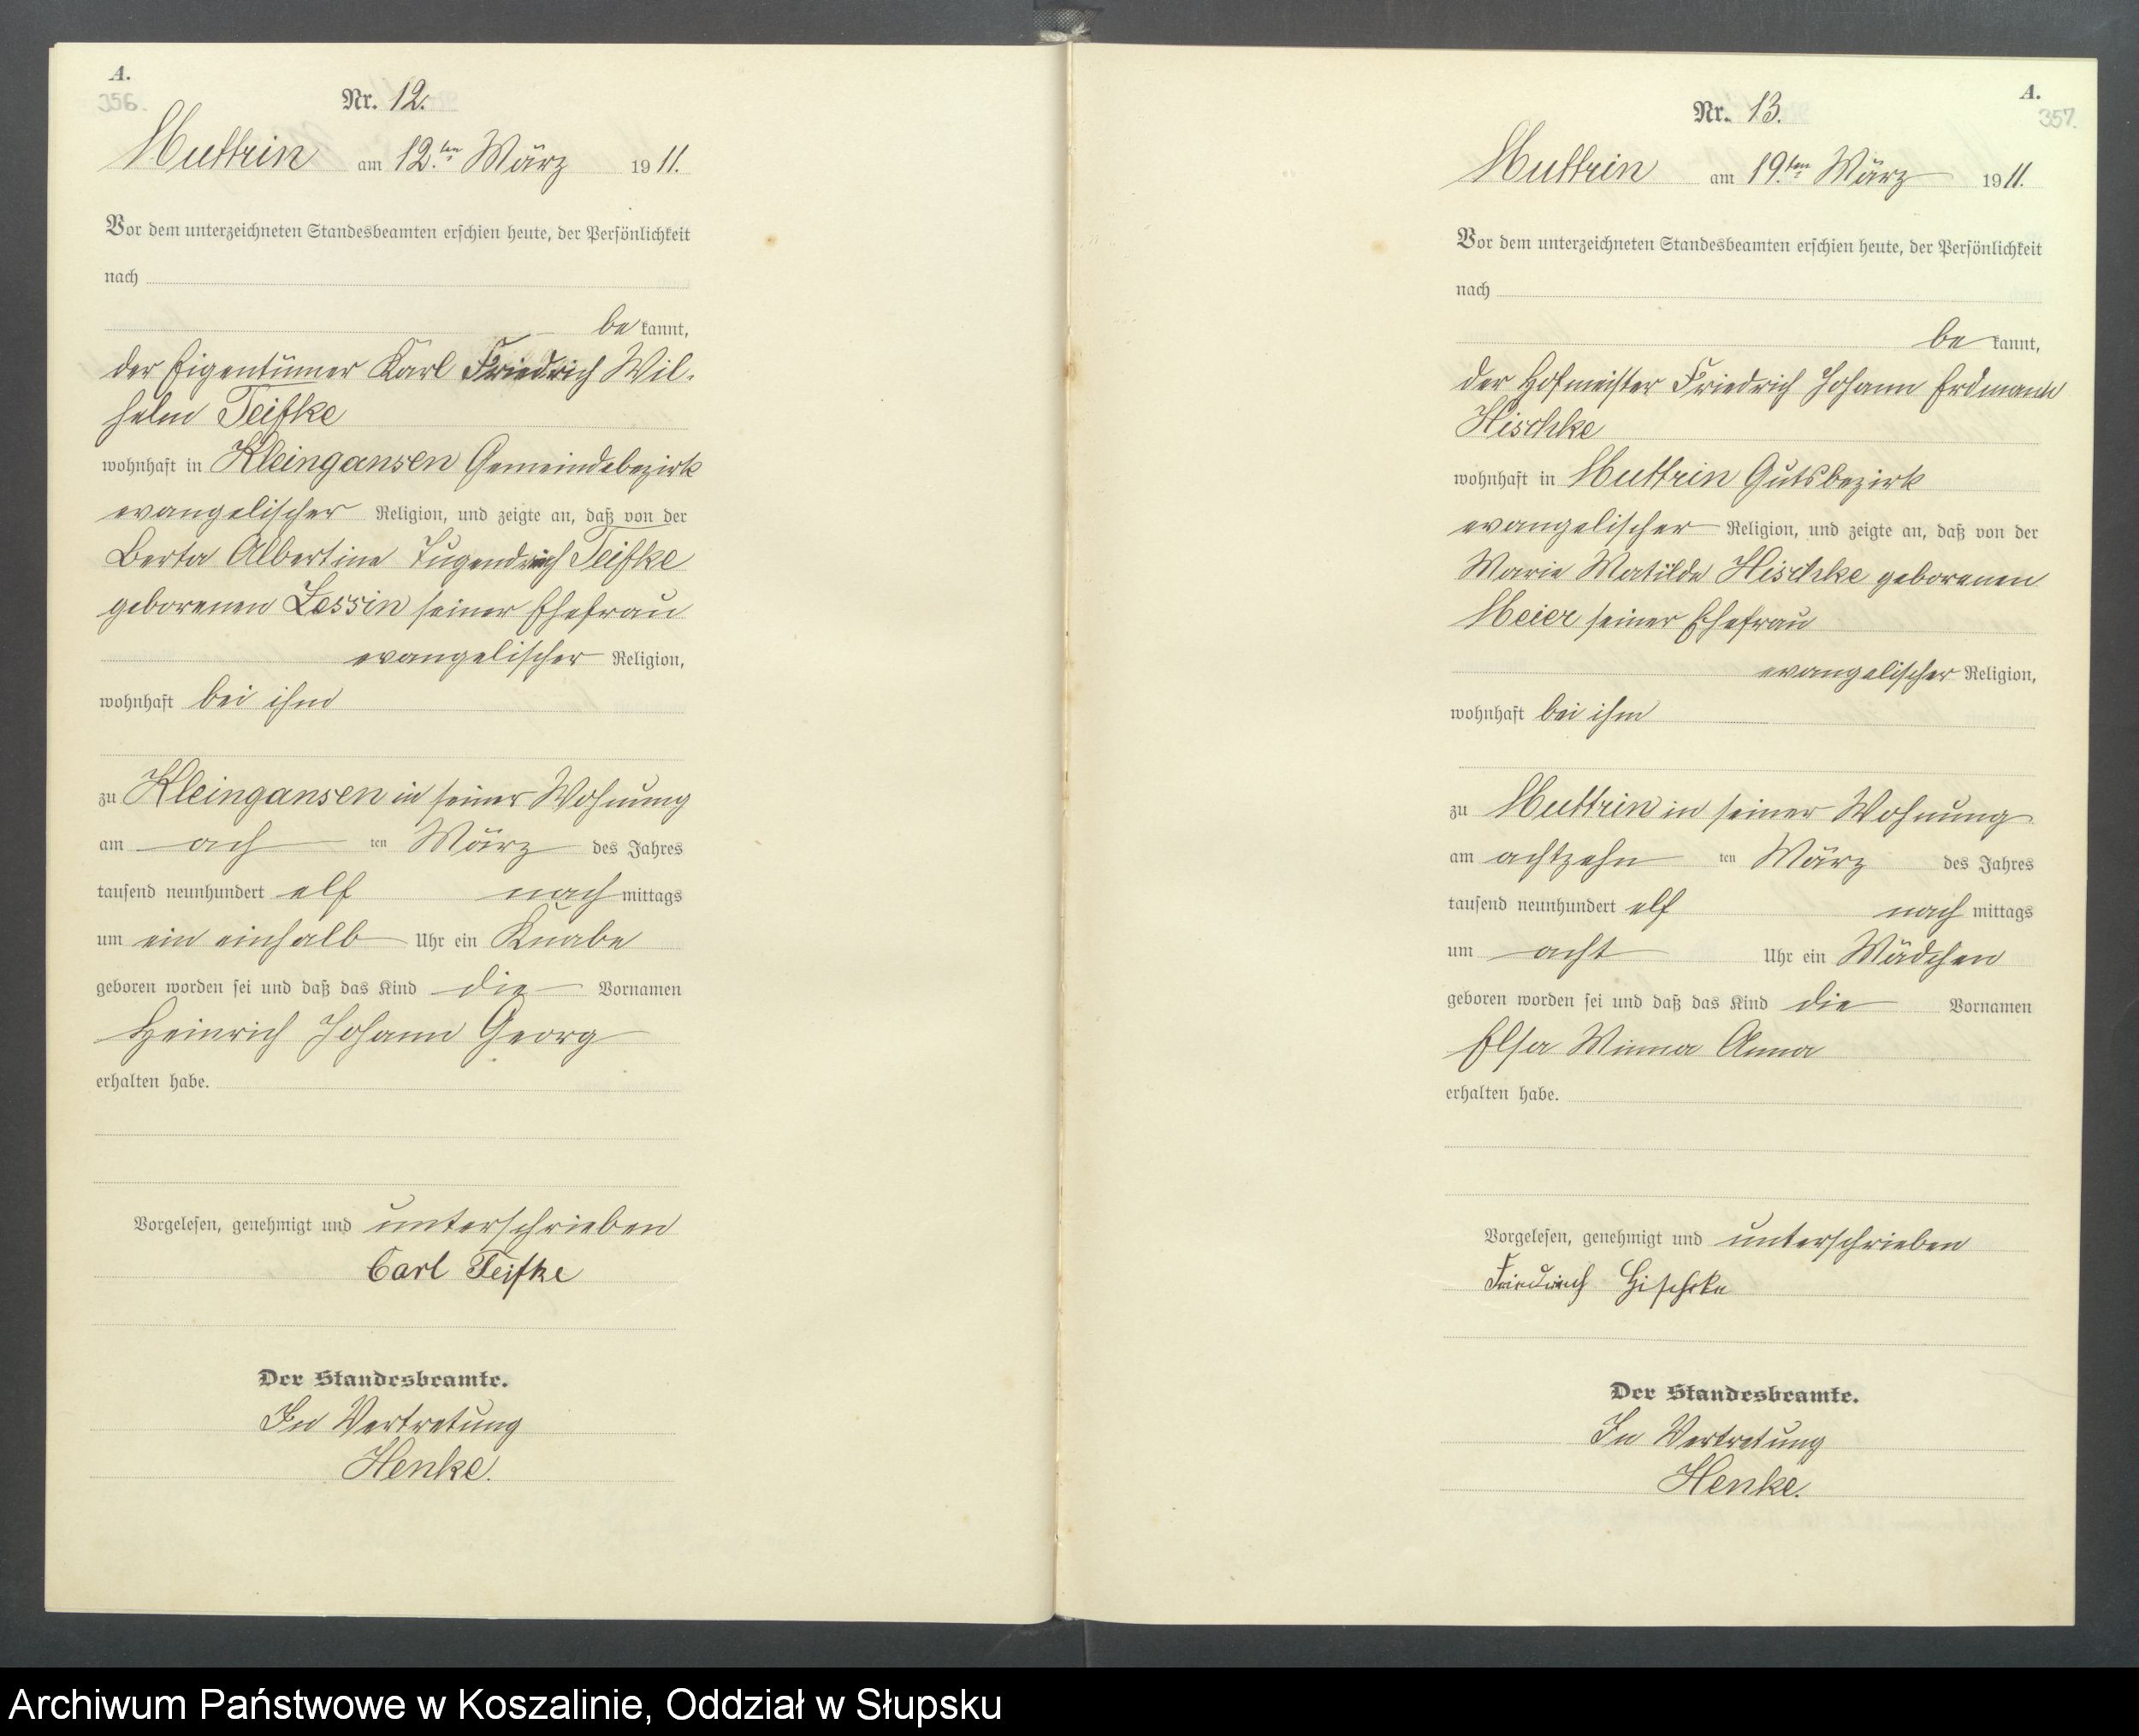 A.
356.
Nr. 12.
Muttrin am 12.ten März 1911.
Vor dem unterzeichneten Standesbeamten erschien heute, der Persönlichkeit
nach
be kannt,
der Eigentümer Karl Friedrich Wil-
helm Teifke
wohnhaft in Kleingansen Gemeindebezirk
evangelischer Religion, und zeigte an, daß von der
Berta Albertine Tugendreich Teifke
geborenen Lessin seiner Ehefrau
evangelischer Religion,
wohnhaft bei ihm
zu Kleingansen in seiner Wohnung
am ach ten März des Jahres
tausend neunhundert elf nach mittags
um ein einhalb Uhr ein Knabe
geboren worden sei und daß das Kind die Vornamen
Heinrich Johann Georg
erhalten habe.
Vorgelesen, genehmigt und unterschrieben
Carl Teifke
Der Standesbeamte.
In Vertretung
Henke.
A.
357.
Nr. 13.
Muttrin am 19.ten März 1911.
Vor dem unterzeichneten Standesbeamten erschien heute, der Persönlichkeit
nach
be kannt,
der Hofmeister Friedrich Johann Erdmann
Hischke
wohnhaft in Muttrin Gutsbezirk
evangelischer Religion, und zeigte an, daß von der
Marie Matilde Hischke geborenen
Meier seiner Ehefrau
evangelischer Religion,
wohnhaft bei ihm
zu Muttrin in seiner Wohnung
am achtzehn ten März des Jahres
tausend neunhundert elf nach mittags
um acht Uhr ein Mädchen
geboren worden sei und daß das Kind die Vornamen
Elsa Minna Anna
erhalten habe.
Vorgelesen, genehmigt und unterschrieben
Friedrich Hischke
Der Standesbeamte.
In Vertretung
Henke.
Archiwum Państwowe w Koszalinie, Oddział w Słupsku